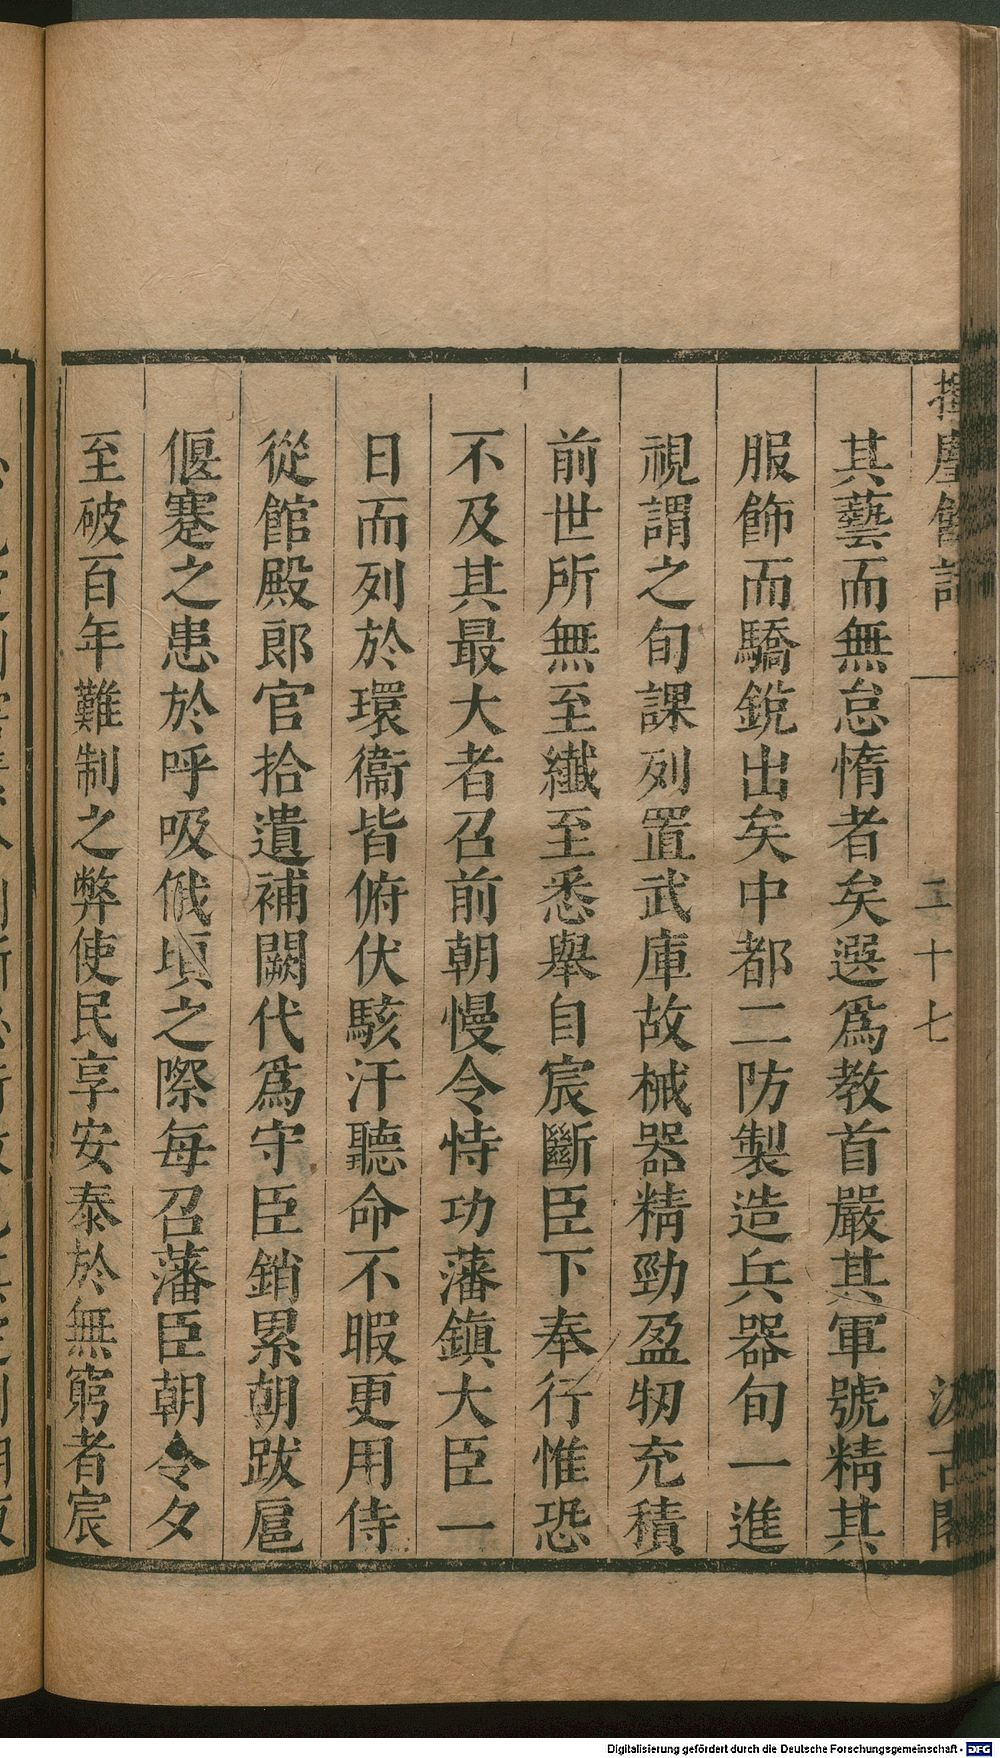 揮麈餘話
二十七
汲古閣
其藝而無怠惰者矣選爲教首嚴其軍號精其
服飾而驕銳出矣中都二防製造兵器旬一進
視謂之旬課列置武庫故械器精勁盈牣充積
前世所無至纖至悉舉自宸斷臣下奉行惟恐
不及其最大者召前朝慢令恃功藩鎭大臣一
日而列於環衞皆俯伏駭汗聽命不暇更用侍
從館殿郎官拾遺補闕代爲守臣銷累朝跋扈
偃蹇之患於呼吸俄頃之際每召藩臣朝令夕
至破百年難制之弊使民享安泰於無窮者宸
Digitalisierung gefördert durch die Deutsche Forschungsgemeinschaft - DFG